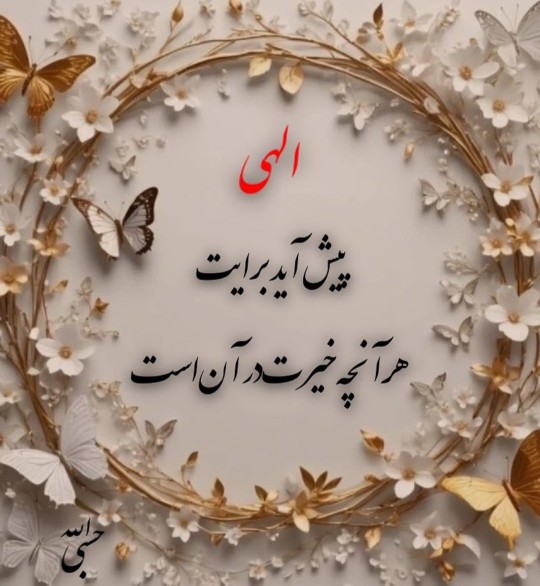 الهی
پیش آید برایت
هر آنچه خیرت در آن است
حسبی الله